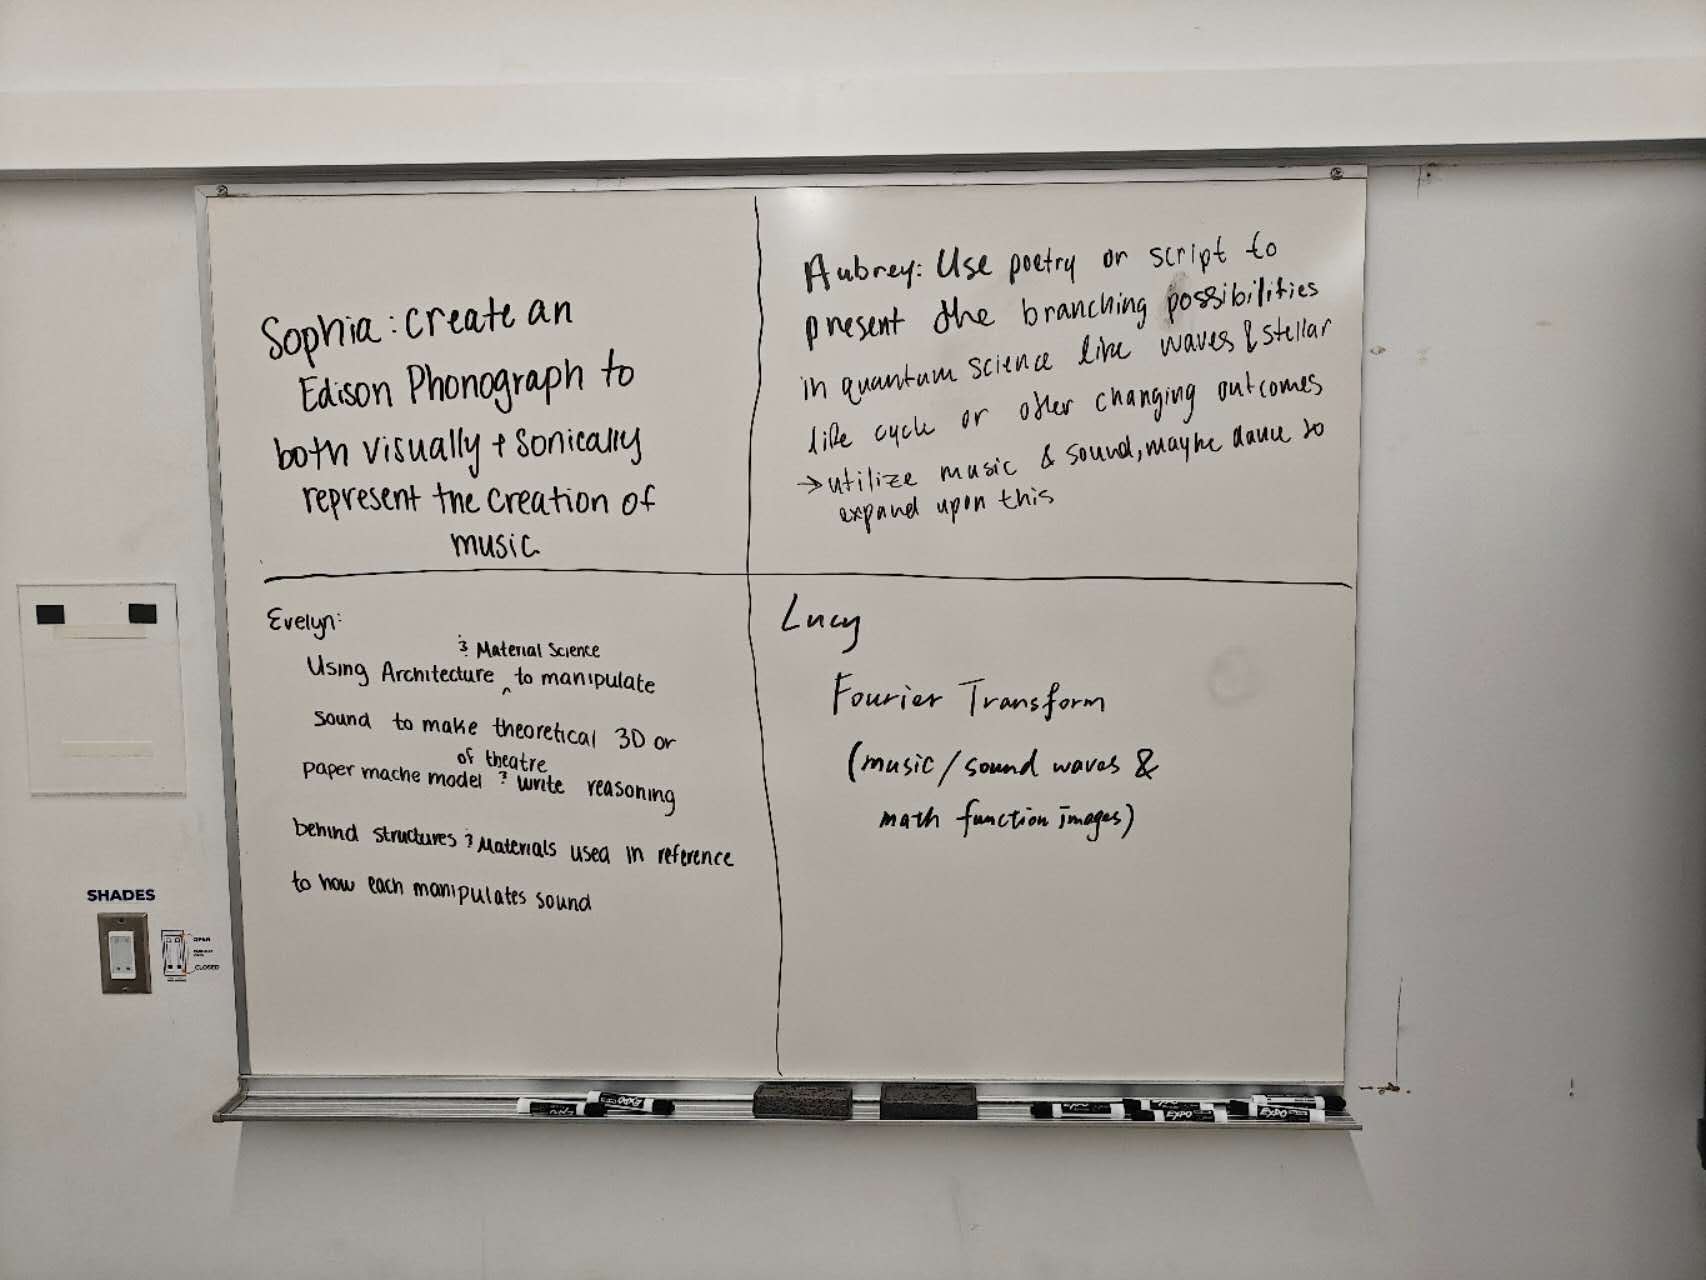 Sophia: create an
Edison Phonograph to
both visually + sonically
represent the creation of
music
Aubrey: Use poetry or script to
present the branching possibilities
in quantum science like waves & stellar
life cycle or other changing outcomes
→ utilize music & sound, maybe dance to
expand upon this
Evelyn:
& Material Science
Using Architecture ^ to manipulate
sound to make theoretical 3D or
of theatre
paper mache model & write reasoning
behind structures & Materials used in reference
to how each manipulates sound
Lucy
Fourier Transform
(music/sound waves &
math function images)
SHADES
OPEN
CLOSED
EXPO
EXPO
EXPO
EXPO